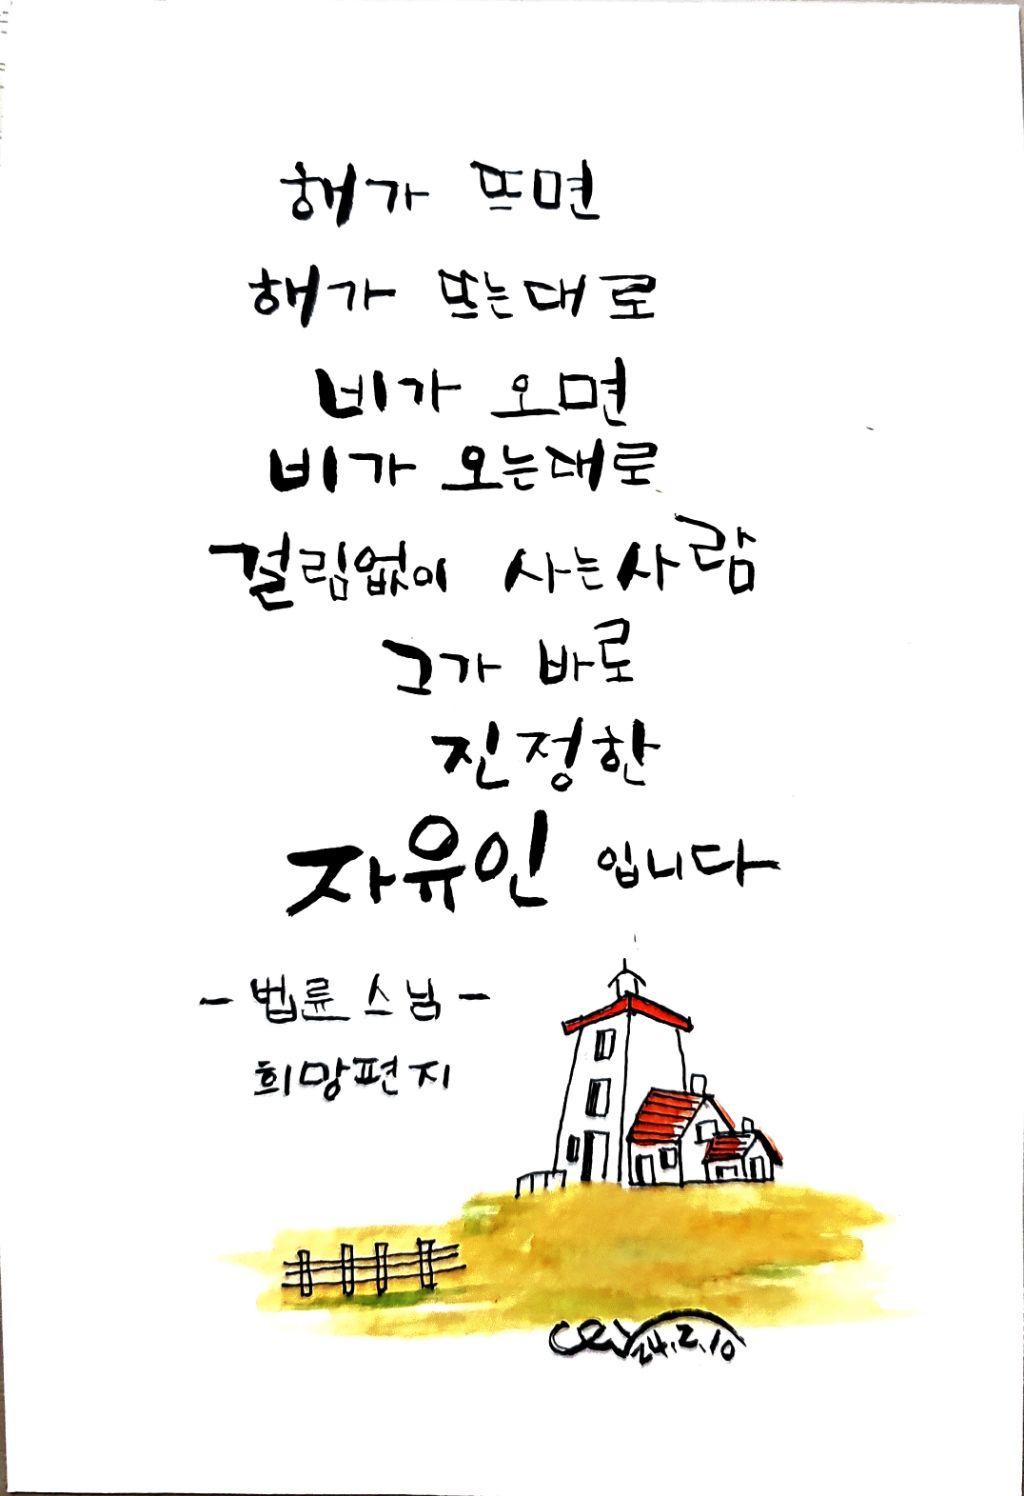 해가 뜨면
해가 뜨는대로
비가 오면
비가 오는대로
걸림없이 사는사람
그가 바로
진정한
자유인 입니다
- 법륜스님 -
희망편지
24.2.10